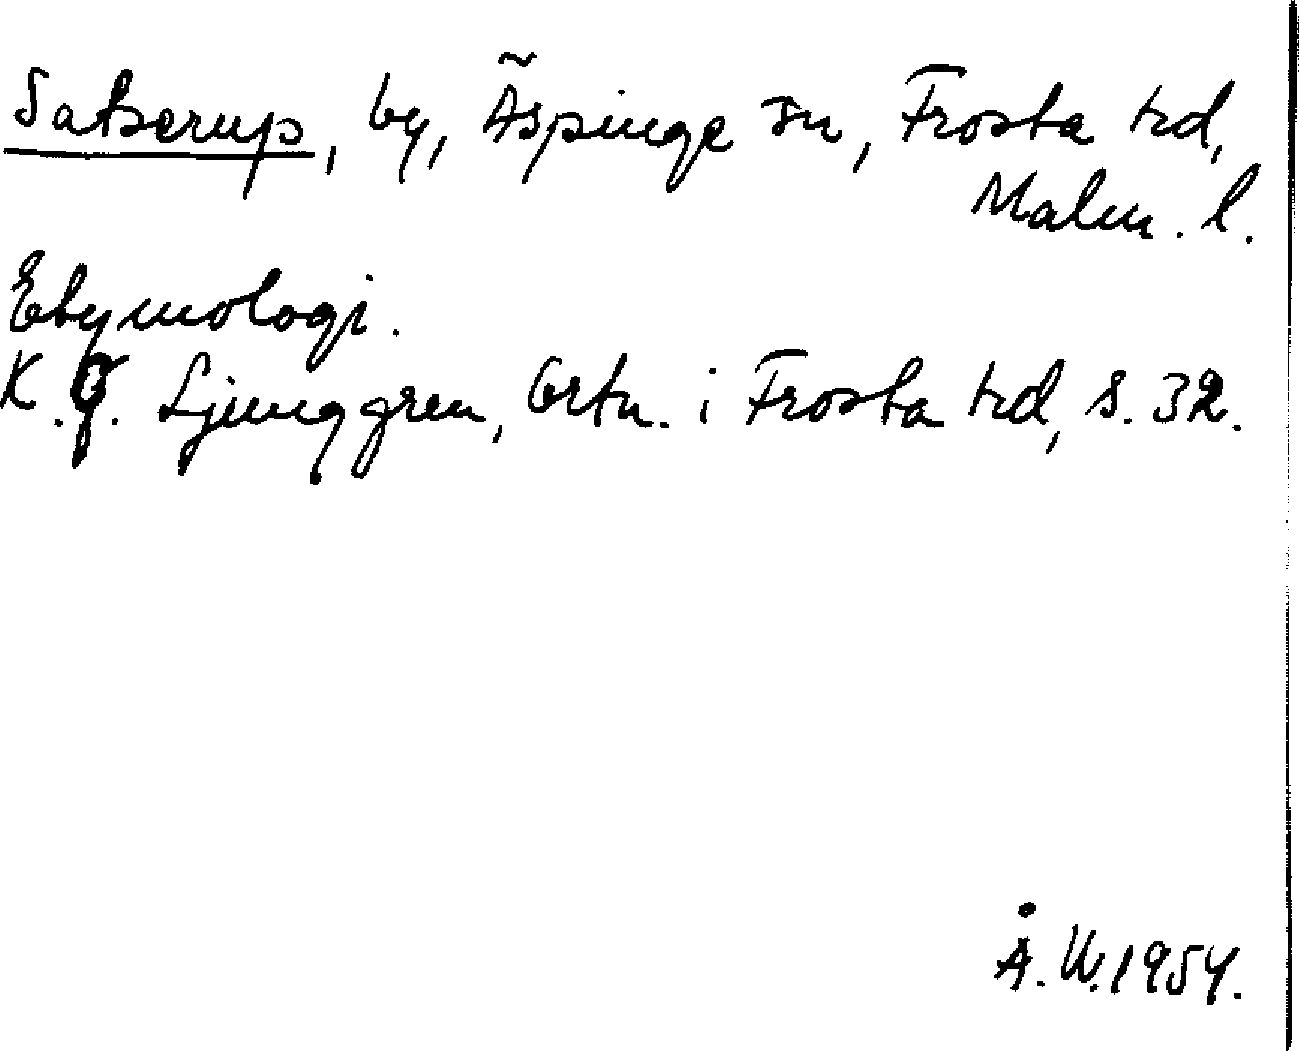 Satserup, by, Äspinge sn, Frosta hd,
Malm. l.
Etymologi.
K.G. Ljunggren, Ortn. i Frosta hd, s. 32.
Å. W. 1954.